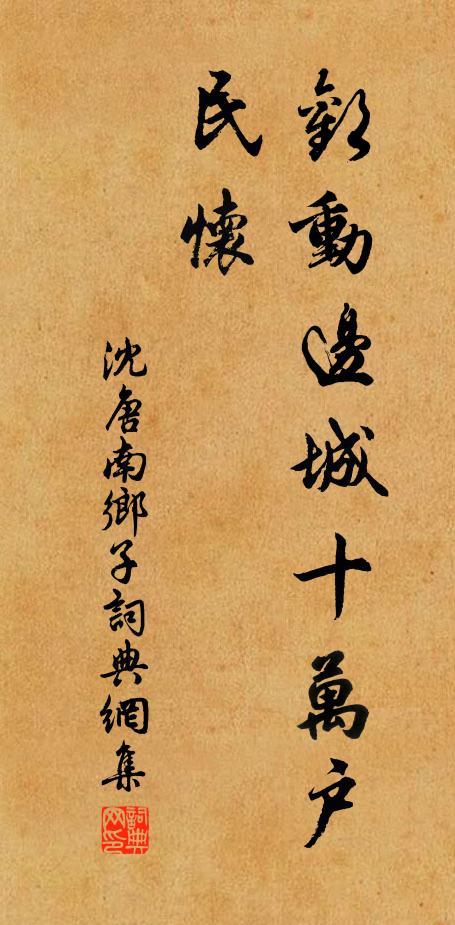 歡動邊城十萬戶
民懷
沈唐南鄉子詞典網集
詞典网印